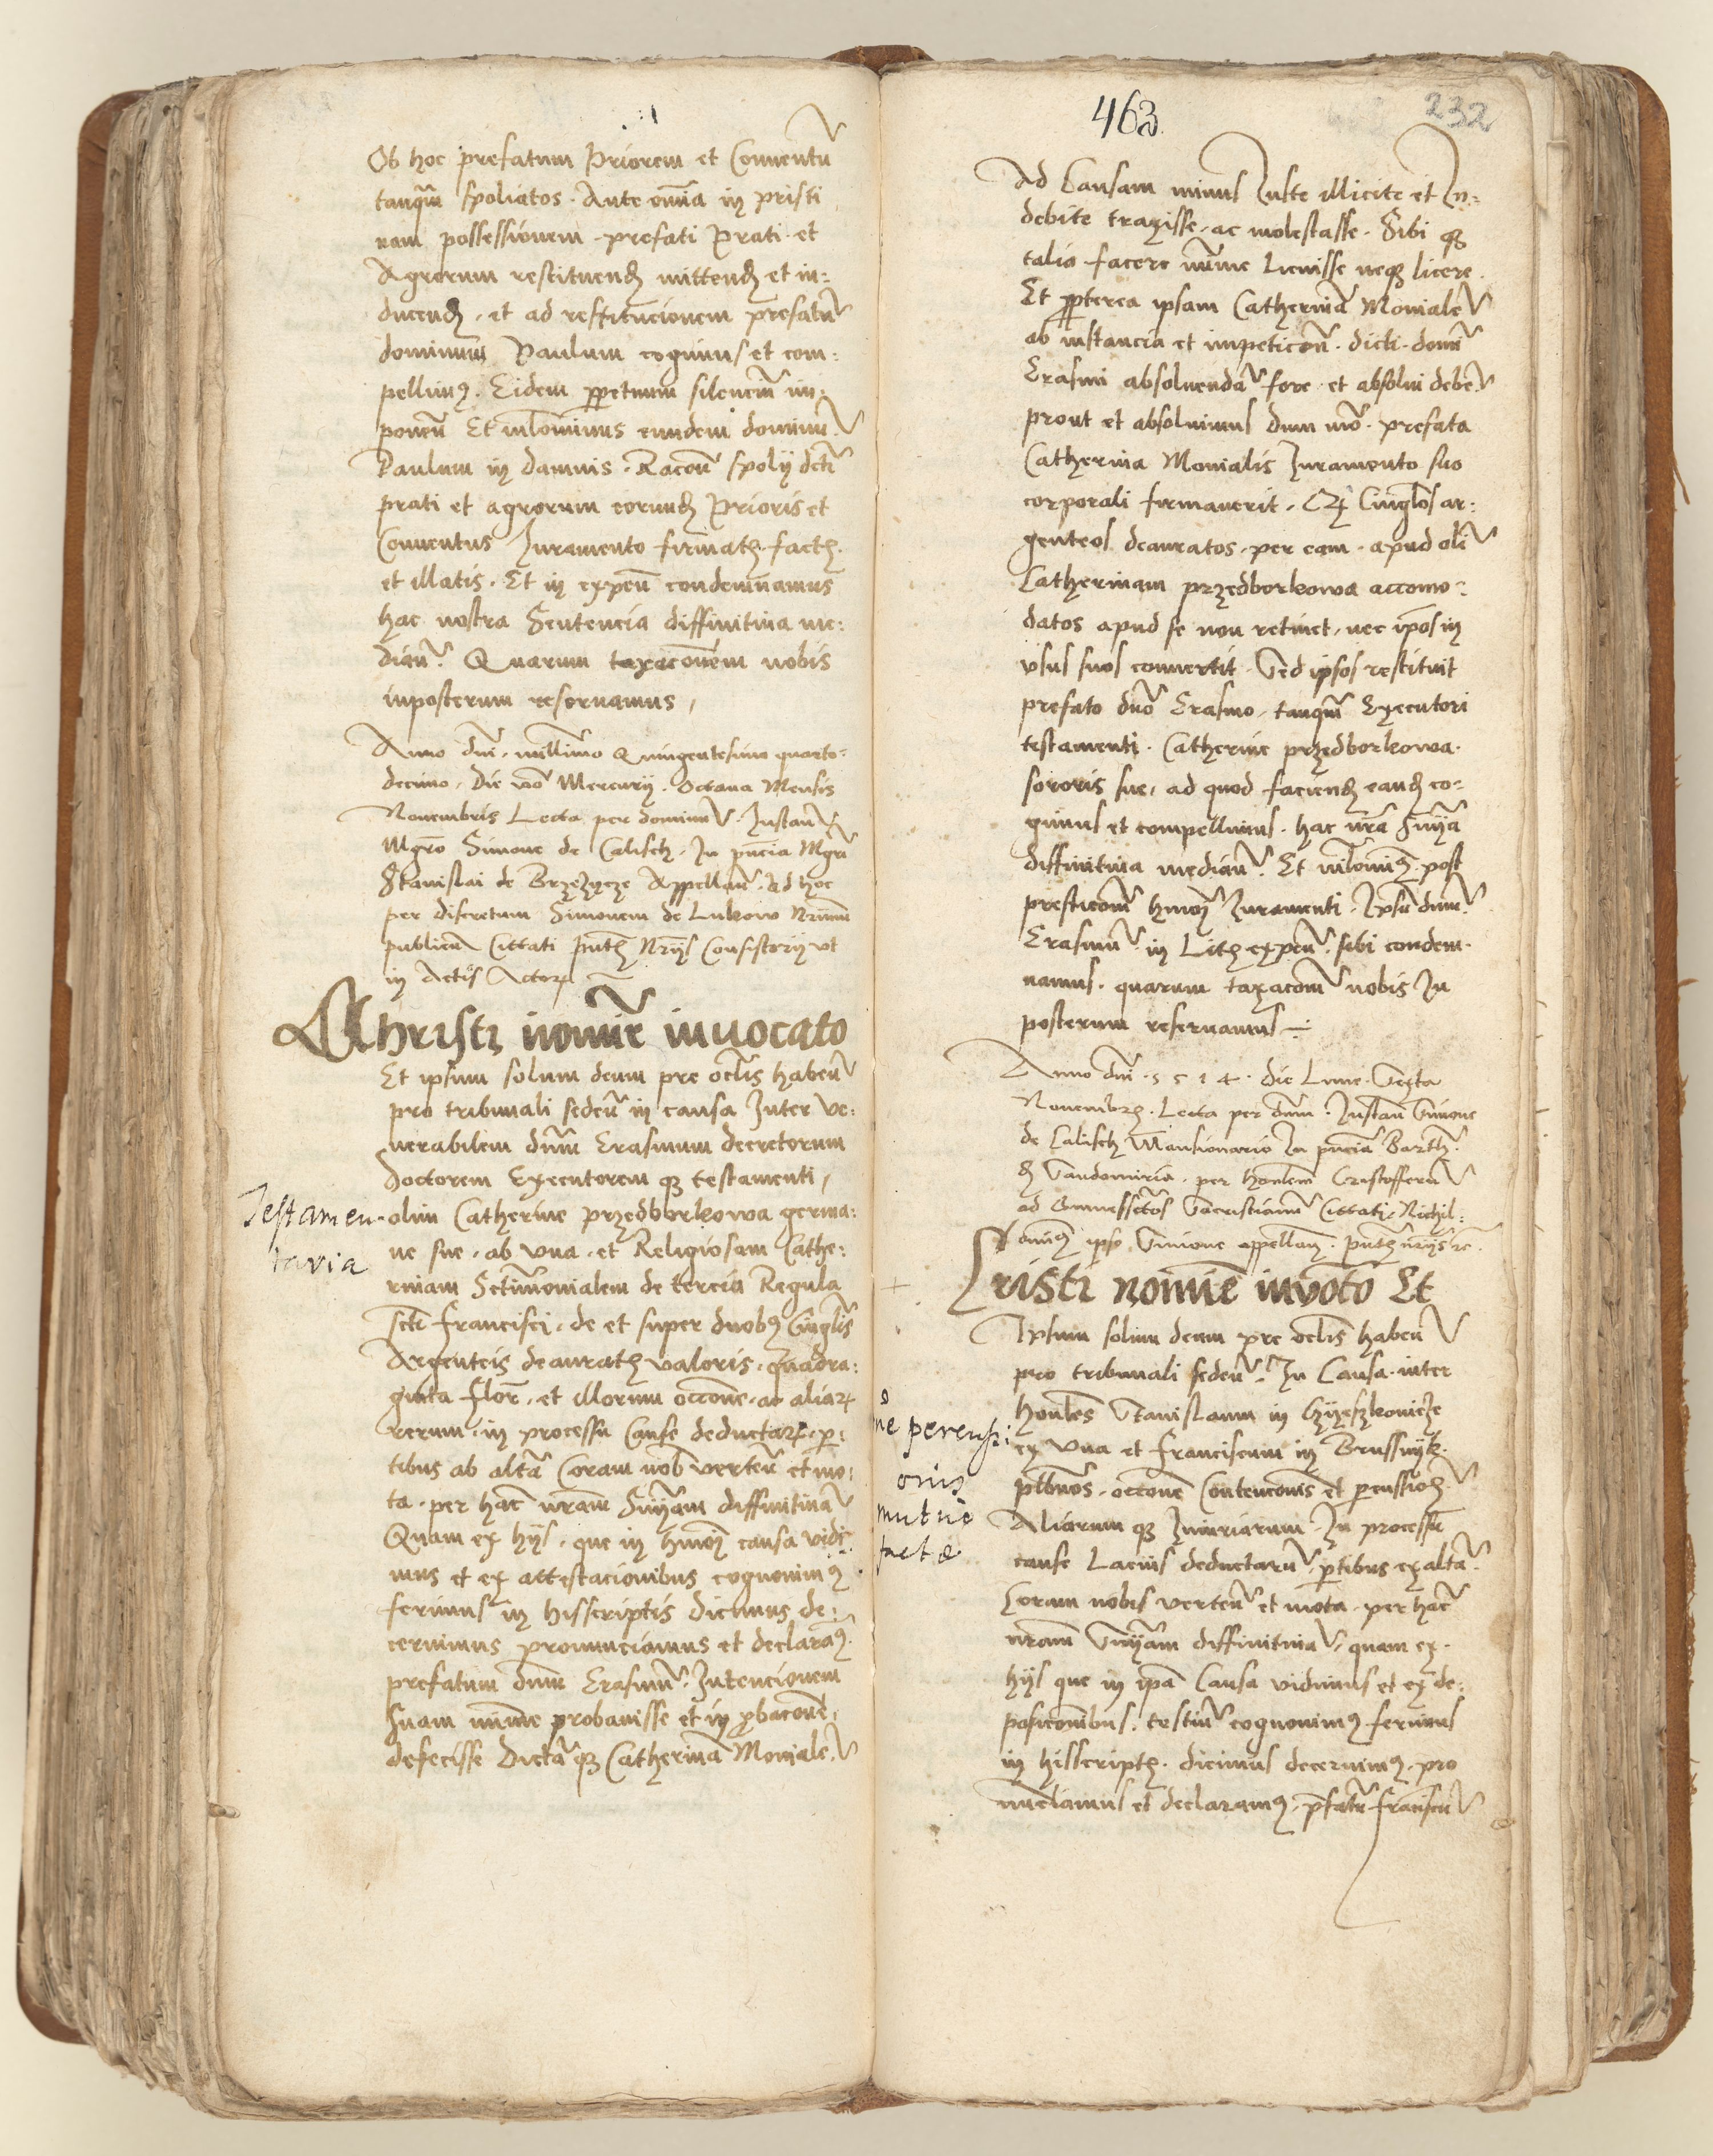 Ob hoc prefatum Priorem et Conuentū
tanq̄m spoliatos. Ante om̄ia in pristi
nam possessionem prefati Prati et
Agrorum restituend mittend et in:
ducend, et ad restitucionem prefatū
dominum Paulum cogimus et com:
pellim9. Eidem ppetuum silenciū im:
ponen̄ Et nilominus eundem dominū
Paulum in damnis. Racōn̄ spolij dcti
prati et agrorum eorund Prioris et
Conuentus Juramento firmat factȝ
et illatis. Et in expēn̄ condemnamus
hac nostra Sentencia diffinitiua me:
dian̄. Quarum taxacōnem nobis
inposterum reseruamus,
Anno dn̄i. millimo Quingentesimo quarto:
decimo, Die vo Mercurij. Octaua Mensis
Nouembris Lecta per dominū. Instan̄
Mgr̄o Simone de Calisch. In pn̄cia Mgri
Stanislai de Brzezyeze Appellan̄. Ad hoc
per discretum Simonem de Lukow Nrium
publicū Cittati pn̄tȝ Nrijs Consistorij vt
in Actis Actorȝ
Christi nomine inuocato
Et ipsum solum deum pre oclis haben̄
pro tribunali seden̄ in causa Inter ve:
nerabilem dn̄m Erasmum decretorum
Doctorem Executorem qȝ testamenti,
Testamen-
taria
olim Catherine przedborkowa germa:
ne sue, ab vna, et Religiosam Cathe:
rinam Sctimonialem de tercia Regula
scti Francisci, de et super duobȝ Cinglis
Argenteis deauratȝ valoris, quadra:
ginta flor̄, et illorum occōne, ac aliarȝ
rerum, in processu Cause deductarȝ, p:
tibus ab altā Coram nob verten̄ et mo:
ta, per hac nr̄am Sniam diffinitiuā
Quam ex hijs, que in hmoi causa vidi:
mus et ex attestacionibus cognouim9
ferimus in hisscriptis dicimus de:
cernimus pronunciamus et declaram9.
prefatum dn̄m Erasmū. Intencionem
suam minime probauisse et in pbacōne,
defecisse Dictā qȝ Catherinā Moniale.
463
232
Ad Causam minus Iuste illicite et In:
debite traxisse, ac molestasse. Sibi qȝ
talia facere minime Licuisse neqȝ licere.
Et ppterea ipsam Catherinā Monialē
ab instancia et impeticōn̄. dicti. domī
Erasmi absoluendā fore, et absolui debē.
prout et absoluimus dum mo. prefata
Catherina Monialis Juramento suo
corporali firmauerit, Qȝ Cinglos ar:
genteos deauratos, per eam, apud oli
Catherinam przedborkowa accomo:
datos apud se non retinet, nec ipos in
vsus suos conuertit. Sed ipsos restituit
prefato dn̄o Erasmo, tanq̄m Executori
testamenti. Catherine przedborkowa.
sororis sue, ad quod faciend eand co:
gimus et compellimus. hac nr̄a Snia
diffinitiua median̄. Et nilomin9 post
presticōm hmoi Juramenti. Ipsū dnm
Erasmū. in Litȝ expēn̄. sibi condem-
namus. quarum taxacōm nobis In
posterum reseruamus
Anno dn̄i. 1514. die Lune. Sexta
Nouembrȝ. Lecta per dn̄m. Instan̄ Simone
de Calisch Mansionario In pn̄cia Barthȝ.
d Sandomiria, per honlem Cristofferū
ad Sacristianū Cittati. Nichil:
ominȝ ipso Simone appellan̄. pn̄tȝ nrijs rc.
Cristi nomine inuoto Et
Ipsum solum deum pre oclis haben̄
pro tribunali seden̄. In Causa inter
honles Stanislaum in
ne percussi
onis
mutuo
facte
ex vna et Franciscum in
plbnos, occōne Contencōnis et percussiōȝ.
Aliorum qȝ Iniuriarum. In processu
cause Lacius deductarū, ptibus ex altā
Coram nobis verten̄ et mota, per hac
nr̄am Sniam diffinitiuā, quam ex.
hijs que in ipa Causa vidimus et ex de:
posicōnibus. testiū cognouim9 ferimus
in hisscriptȝ. dicimus decernim9. pro
nuciamus et declaram9, pfatū Franciscū